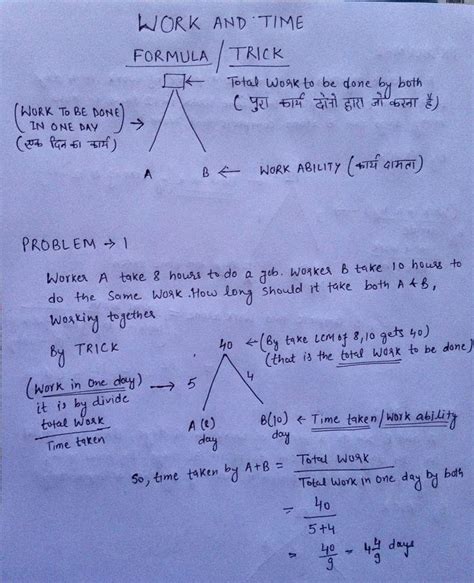 WORK AND TIME
FORMULA / TRICK
← Total Work to be done by both
( पुरा कार्य दोनो द्वारा जो करना है)
(WORK TO BE DONE)
IN ONE DAY →
(एक दिन का कार्य)
A B ← WORK ABILITY (कार्य क्षमता)
PROBLEM → 1
Worker A take 8 hours to do a job. Worker B take 10 hours to
do the same work. How long should it take both A & B,
Working together
By TRICK
40 ← (By take LCM of 8,10 gets 40)
(that is the total Work to be done)
(Work in One day) → 5 4
it is by divide
total Work
Time taken
A (8) B(10) ← Time taken / Work ability
day day
So, time taken by A+B = Total Work
Total Work in one day by both
= 40
5+4
= 40/9 = 4 4/9 days